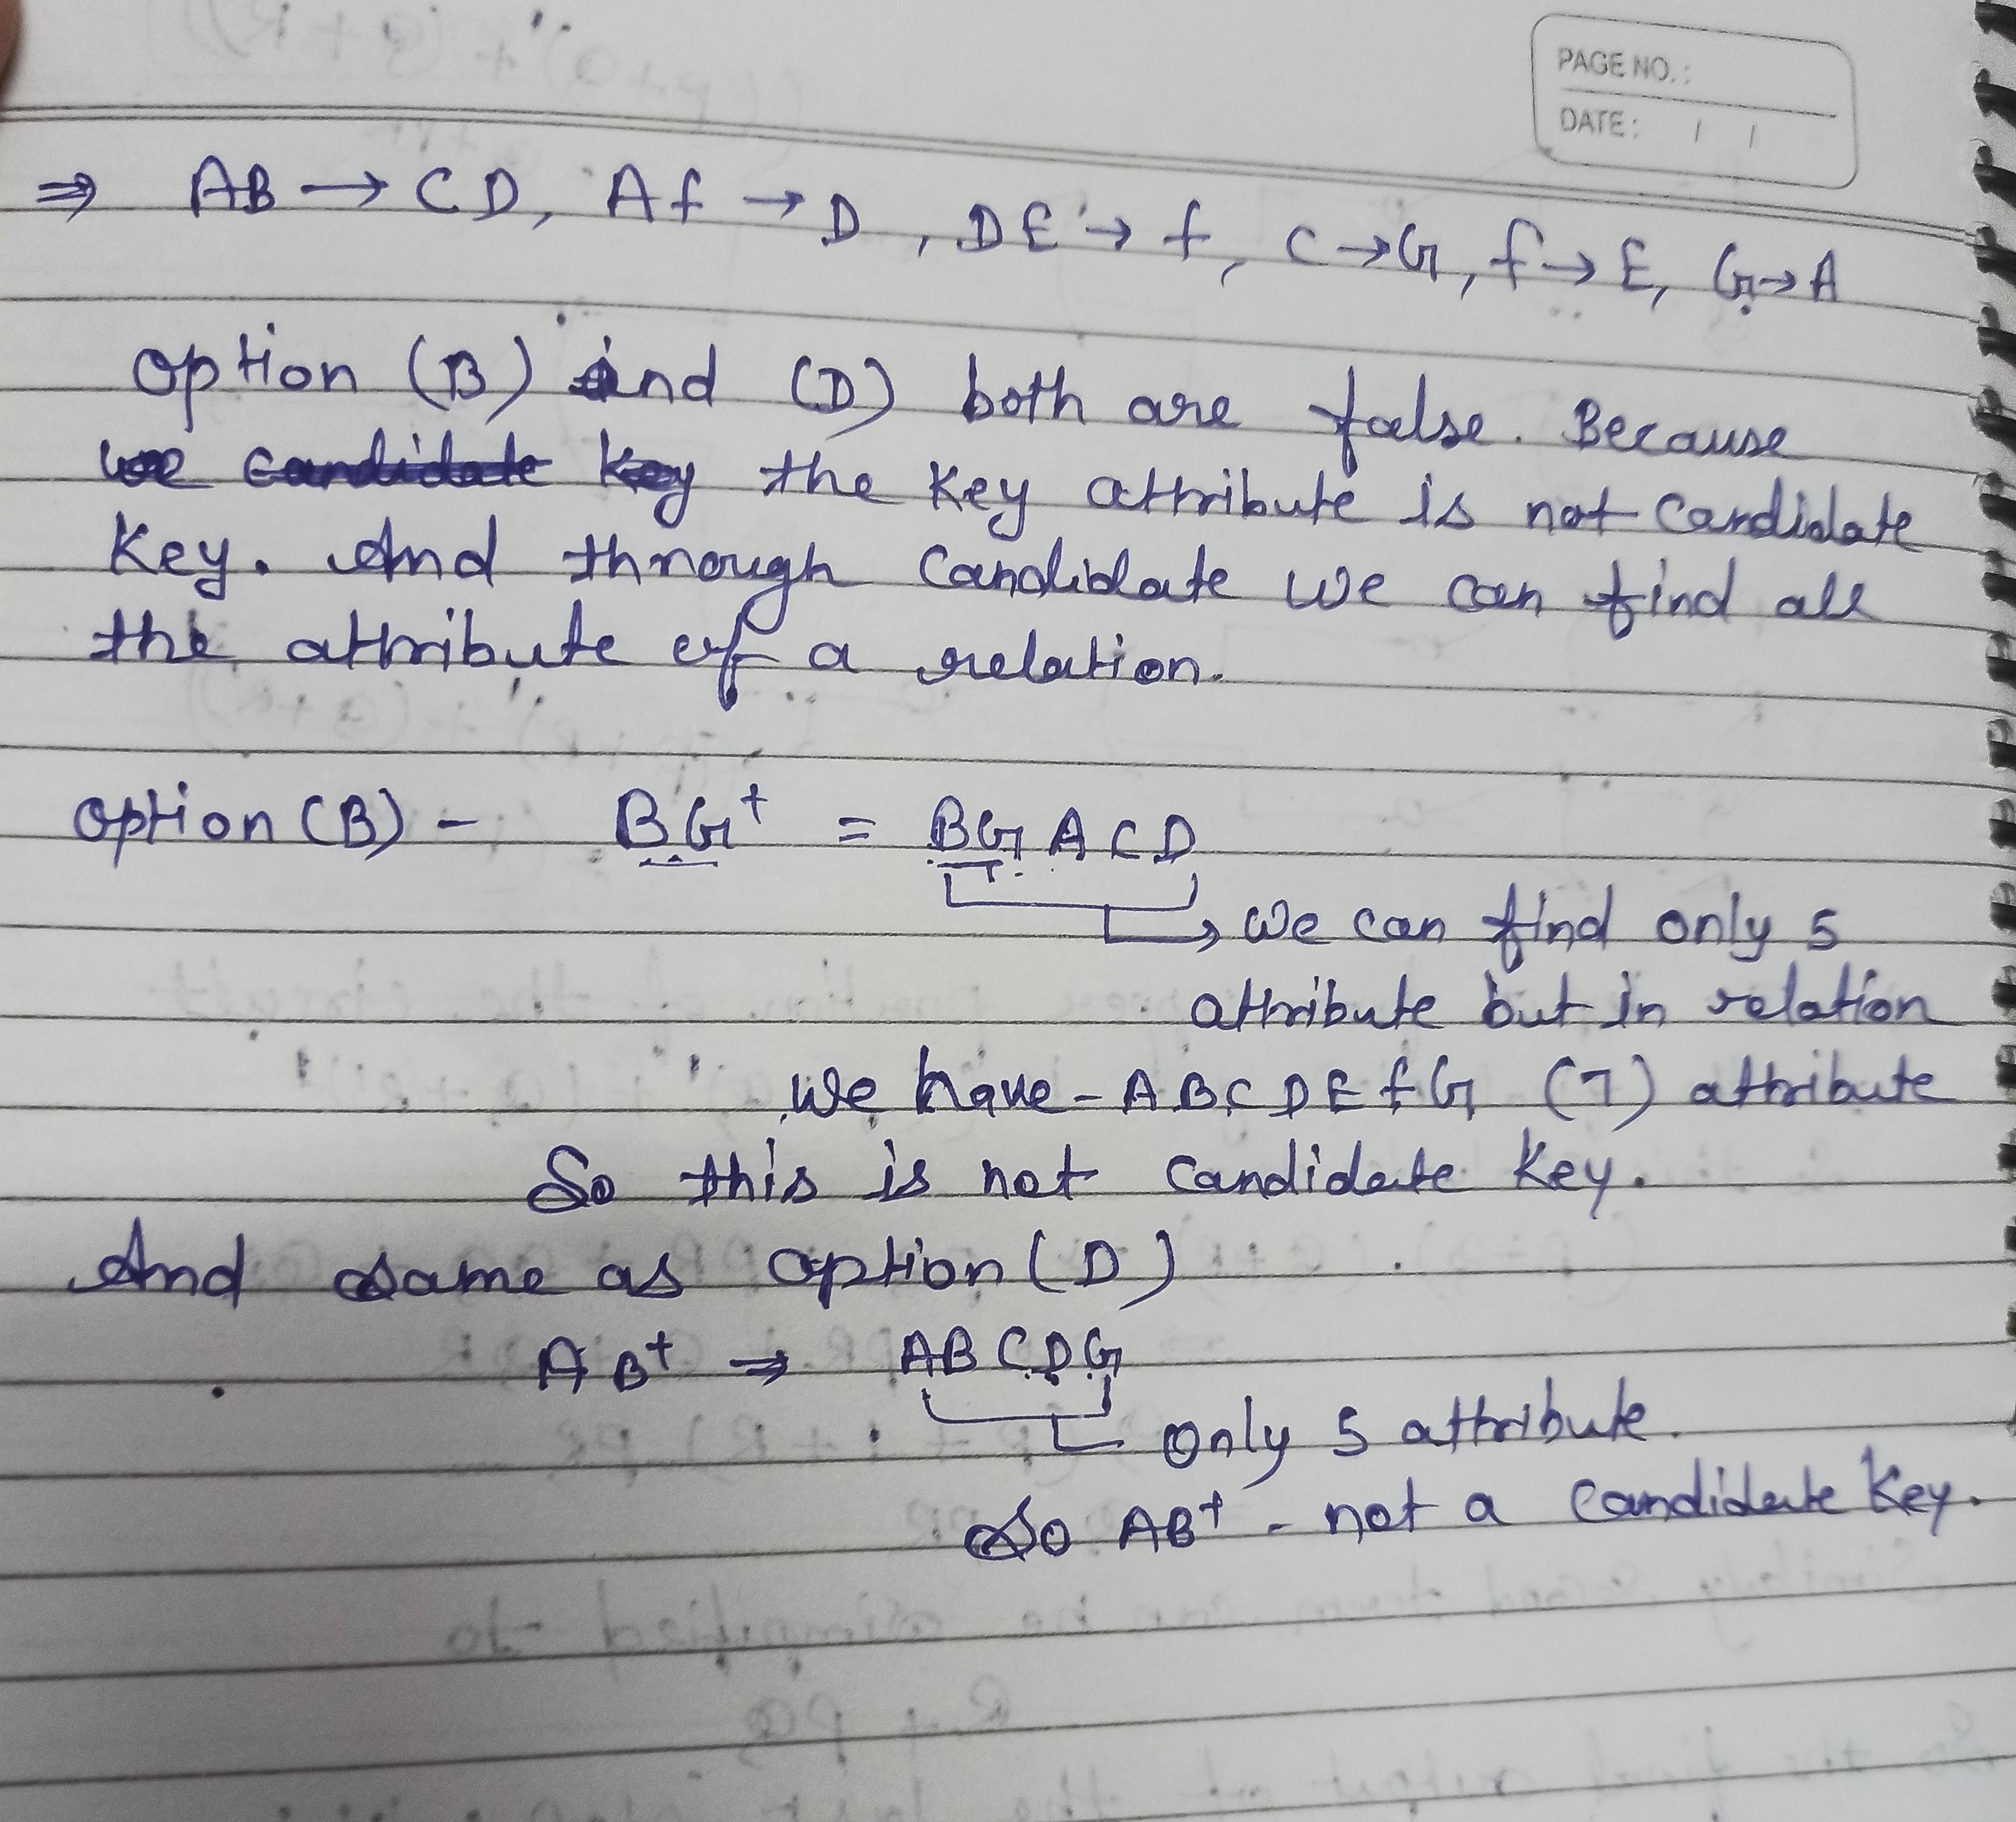 PAGE NO.:
DATE: / /
⇒ AB → CD, Af → D, DE → f, C → G, f → E, G → A
option (B) and (D) both are false. Because
the key attribute is not candidate
key. And through candidate we can find all
the attribute of a relation.
option (B) - BG⁺ = BGACD
→ we can find only 5
attribute but in relation
we have - ABCDEfG (7) attribute
So this is not candidate key.
And same as option (D)
AB⁺ ⇒ ABCDG
only 5 attribute.
So AB⁺ - not a candidate key.